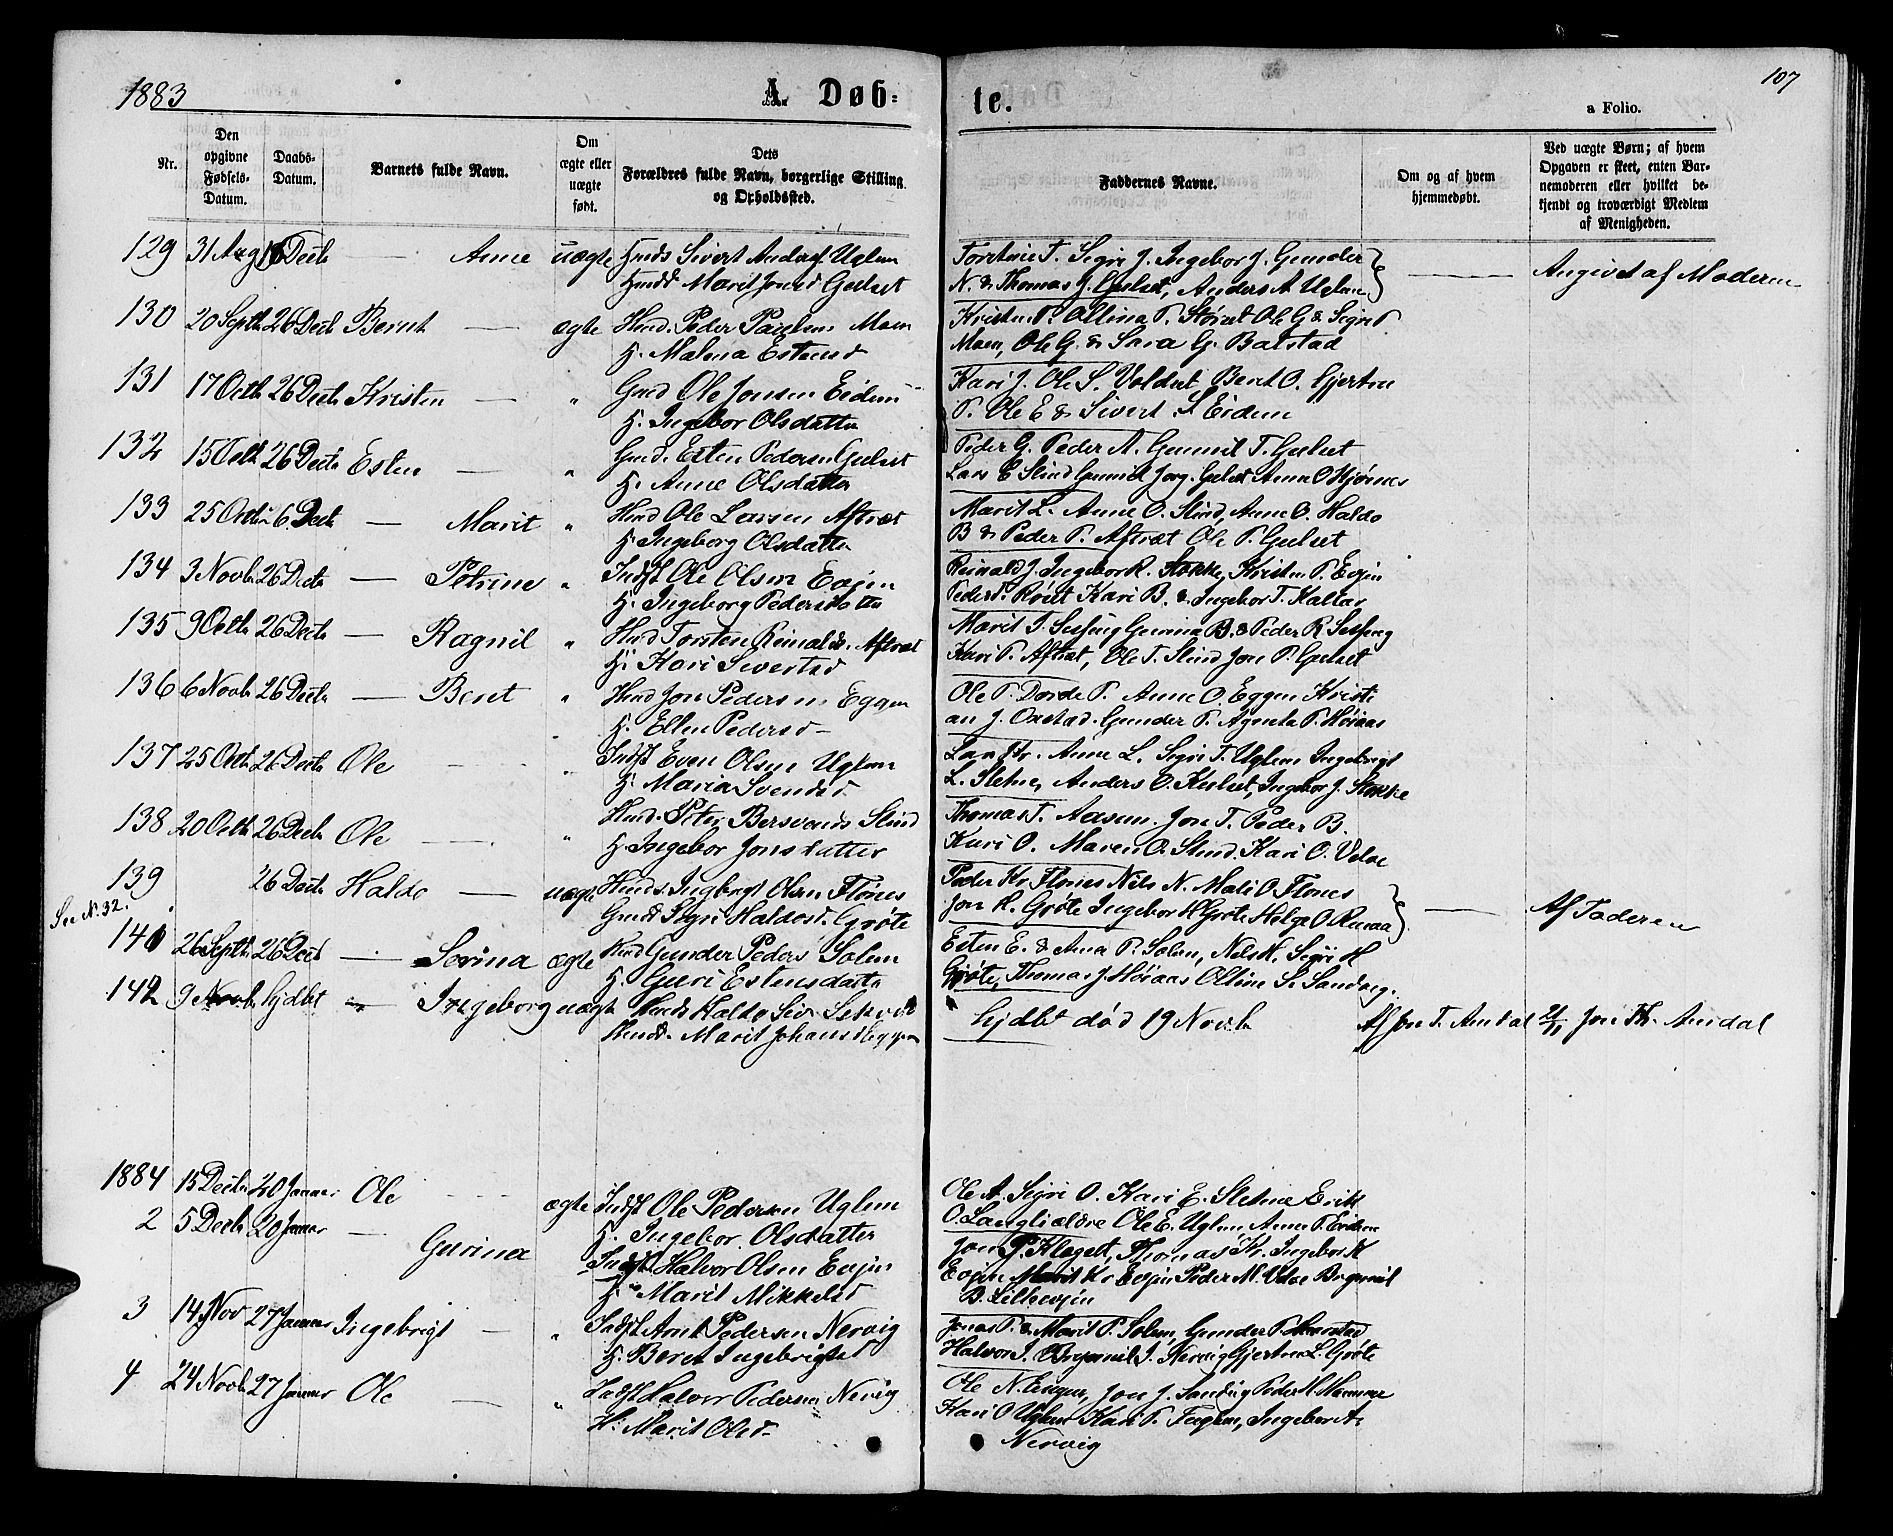 1883
A. Døb-
te.
107
a Folio.
Nr.
Den opgivne Fødsels-Datum.
Daabs-Datum.
Barnets fulde Navn.
Om ægte eller uægte født.
Dets Forældres fulde Navn, borgerlige Stilling og Opholdssted.
Faddernes Navne.
Om og af hvem hjemmedøbt.
Ved uægte Børn; af hvem Opgaven er skeet, enten Barnemoderen eller hvilket bekjendt og troværdigt Medlem af Menigheden.
129 31 Aug 16 Decb — Anne uægte Sivert Uglem
Marit Jonsd Gulset
Torstine T. Sigri J. Ingebor J. Gunder
N. & Thomas J. Gulset, Anders A Uglem — Angivet af Moderen
130 20 Septb 26 Decb Bernt — ægte Hmd. Peder Paulsen Moen
H. Malena Estensd
Kristen P. Ollina P. Størset Ole G & Sigri P
Moen, Ole G. & Sara G. Balstad
131 17 Octb 26 Decb Kristen — „ Gmd Ole Jonsen Eidem
H. Ingebor Olsdatter
Kari J. Ole S. Voldset Beret O. Gjertru
P. Ole E & Sivert S Eidem
132 15 Octb 26 Decb Esten — „ Gmd. Esten Pedersen Gulset
H. Anne Olsdatter
Peder G. Peder A. Gunnil T. Gulset
Lars E Slind Gunnil Jørg. Gulset Anne O Kjøsnes
133 25 Octb 26 Decb — Marit „ Hmd Ole Larsen Aftret
H. Ingeborg Olsdatter
Marit L. Anne O. Slind, Anne O. Haldo
B & Peder P. Aftræt Ole P. Gulset
134 3 Novb 26 Decb — Petrine „ Indst Ole Olsen Evjen
H. Ingeborg Pedersdatter
Reinald J. Ingebor R. Stokke, Kristen P. Evjen
Peder P. Røset Kari B. & Ingebor T. Kallar
135 9 Octb 26 Decb — Ragnil „ Hmd Torsten Reinalds. Aftræt
H. Kari Sivertsd
Marit T. Sesseng Gunina B. & Peder R Sesseng
Kari P. Aftræt, Ole T. Slind Jon P. Gulset
136 6 Novb 26 Decb — Beret „ Hmd Jon Pedersen Eggen
H. Ellen Pedersd
Ole P. Dorde P. Anne O. Eggen Kristi
an J. Oxstad. Gunder P. Agneta P. Høiaas
137 25 Octb 26 Decb Ole — „ Indst Even Olsen Uglem
H. Maria Svendsd
Lars Kr. Anne L. Sigri T. Uglem Ingebrigt
L. Sletne, Anders O. Kulset, Ingebor J. Stokke
138 20 Octb 26 Decb Ole — „ Hmd. Peter Bersvends Slind
H. Ingebor Jonsdatter
Thomas T. Aasen. Jon T. Peder B.
Kari O. Maren O. Slind. Kari O. Velve
139 26 Decb Haldo — uægte Hmds. Ingbrigt Olsen Flønes
Gmdd Sigri Haldosd. Grøte
Peder Kr. Flønes Nils N. Mali O Flønes
Jon H. Grøte Ingebor H Grøte Helge O Renaa — Af Faderen
See N. 32.
140 26 Septb 26 Decb — Serina ægte Hmd Gunder Peders Solem
H. Guri Estensdatter
Esten E. & Ana P. Solem, Nils H. Sigri H
Grøte, Thomas J. Høiaas Olline S. Sandvig.
142 9 Novb. hjdbt — Ingeborg uægte Haldo Siv. Selvik
Marit Johansd Eggen
hjdbt død 19 Novb Af Jon T. Amdal Jon Th. Amdal
1884 15 Decb 20 Januar Ole ægte Indst Ole Pedersen Uglem
H. Ingebor. Olsdatter
Ole A. Sigri O. Kari E. Sletne Erik
O. Langli ældre Ole E. Uglem Anne P. Eidem
2 5 Decb 20 Januar — Gurina Indst Halvor Olsen Evjen
H. Marit Mikkelsd
Jon P. Kleset, Thomas Kr. Ingebor K
Evjen Marit Kr Evjen Peder M. Velve Brynnil
B. Lilleevjen
3 14 Nov 27 Januar Ingebrigt — „ Indst Arnt Pedersen Nervig
H. Beret Ingebrigtsd
Jonas P. & Marit P. Solem, Gunder P. Aarstad
Halvor J. Brynnil J. Nervig Gjertru L. Grøte
4 24 Novb 27 Januar Ole — „ Indst Halvor Pedersen Nervig
H. Marit Olsd
Ole N. Engen, Jon J. Sandvig Peder H. Hammer
Kari O Uglem Kari P. Fuglem, Ingebor A.
Nervig